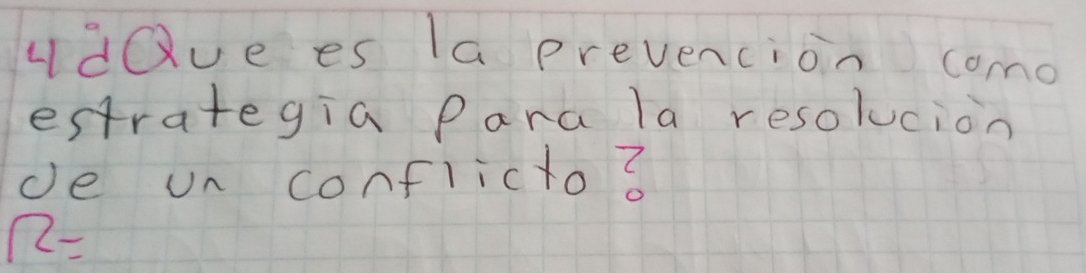 4 ¿Que es la prevención como
estrategia para la resolución
de un conflicto?
R=